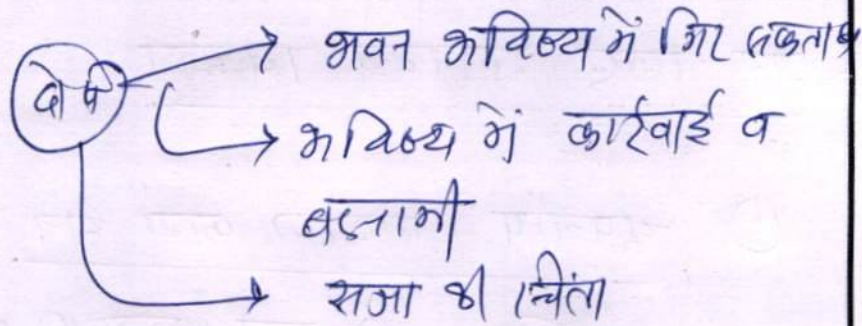 दोष
भवन भविष्य में गिर सकता है
भविष्य में कार्रवाई व
बदनामी
सजा की चिंता